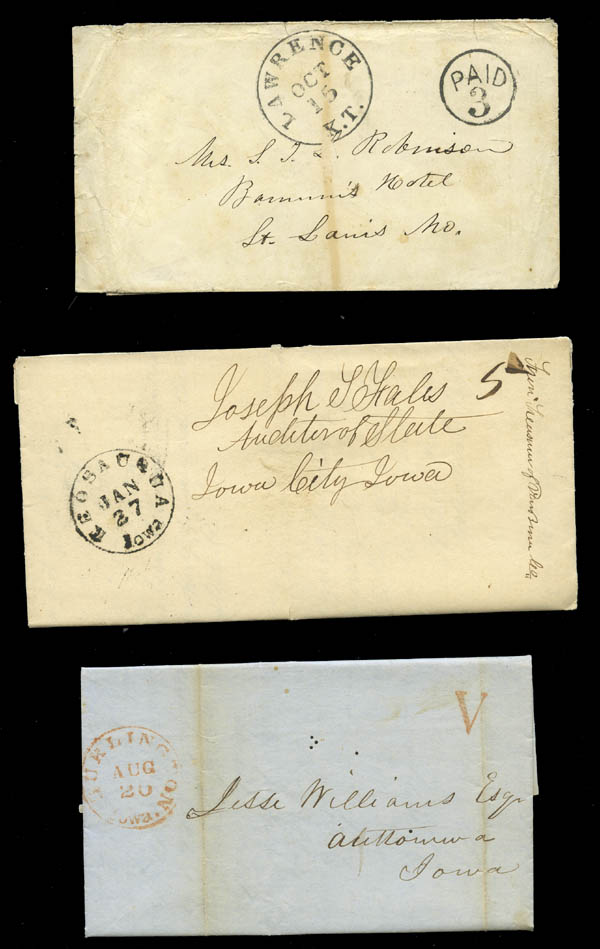 LAWRENCE K.T.
OCT
15
PAID
3
Mrs. S. T. L. Robinson
Barnum's Hotel
St. Louis Mo.
Joseph S Fales
Auditor of State
Iowa City Iowa
5
From Treasurer of Van Buren Co
KEOSAUQUA Iowa
JAN
27
BURLINGTON Iowa.
AUG
20
V
Jesse Williams Esqr
Iowa